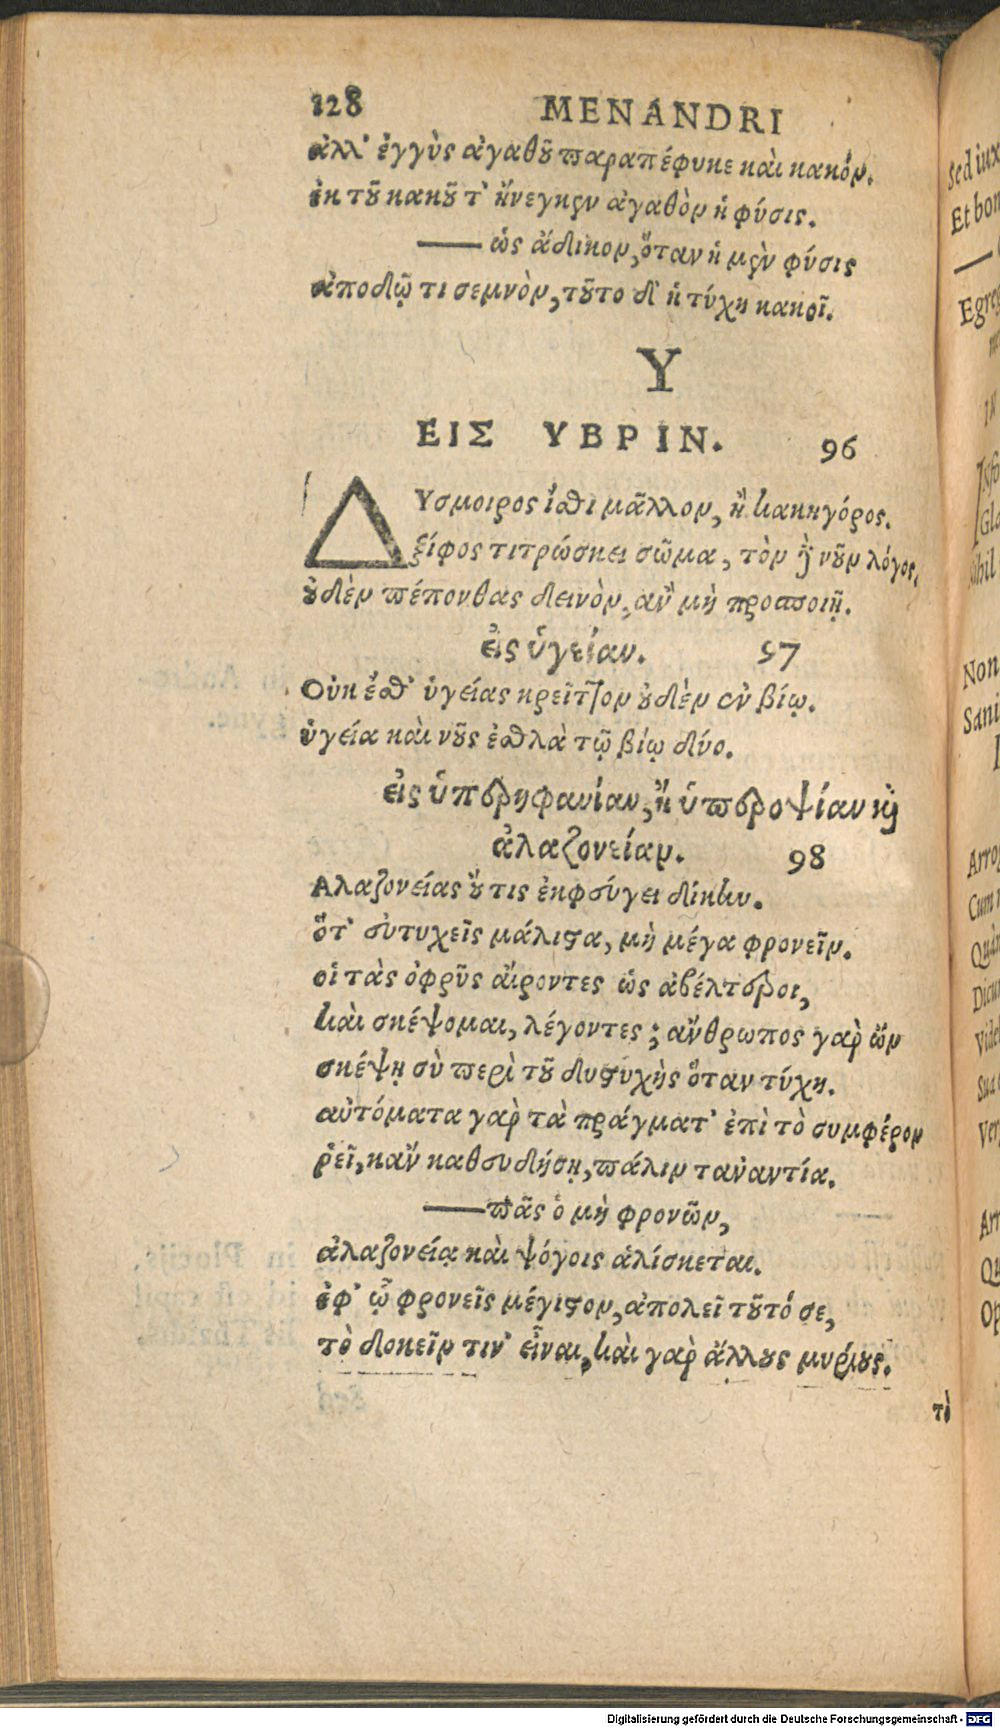 128 MENANDRI
ἀλλ' ἐγγὺς ἀγαθοῦ παραπέφυκε καὶ κακόν.
ἐκ τοῦ κακοῦ τ' ἤνεγκεν ἀγαθὸν ἡ φύσις.
—— ὡς ἄδικον, ὅταν ἡ μὲν φύσις
ἀποδῷ τι σεμνὸν, τοῦτο δ' ἡ τύχη κακοῖ.
Υ
ΕΙΣ ΥΒΡΙΝ. 96
ΔΥσμοιρος ἴσθι μᾶλλον, ἢ κακηγόρος.
ξίφος τιτρώσκει σῶμα, τὸν δὲ νοῦν λόγος.
οὐδὲν πέπονθας δεινὸν, ἂν μὴ προσποιῇ.
εἰς ὑγείαν. 97
Οὐκ ἔσθ' ὑγείας κρεῖττον οὐδὲν ἐν βίῳ.
ὑγεία καὶ νοῦς ἐσθλὰ τῷ βίῳ δύο.
εἰς ὑπερηφανίαν, ἢ ὑπεροψίαν καὶ
ἀλαζονείαν. 98
Αλαζονείας οὔτις ἐκφεύγει δίκην.
ὅτ' εὐτυχεῖς μάλιστα, μὴ μέγα φρονεῖν.
οἱ τὰς ὀφρῦς αἴροντες ὡς ἀβέλτεροι,
καὶ σκέψομαι, λέγοντες; ἄνθρωπος γὰρ ὢν
σκέψῃ σὺ περὶ τοῦ δυστυχὴς ὅταν τύχῃ.
αὐτόματα γὰρ τὰ πράγματ' ἐπὶ τὸ συμφέρον
ῥεῖ, κἂν καθευδήσῃ, πάλιν τἀναντία.
—— πᾶς ὁ μὴ φρονῶν,
ἀλαζονείᾳ καὶ ψόγοις ἁλίσκεται.
ἐφ' ᾧ φρονεῖς μέγιστον, ἀπολεῖ τοῦτό σε,
τὸ δοκεῖν τιν' εἶναι, καὶ γὰρ ἄλλους μυρίους.
τὸ
Sed iux
Et bon
Egreg
Non
Sani
Arro
Cum
Quàm
Dicu
Vide
Sua
Ver
Arr
Qu
Op
Digitalisierung gefördert durch die Deutsche Forschungsgemeinschaft - DFG